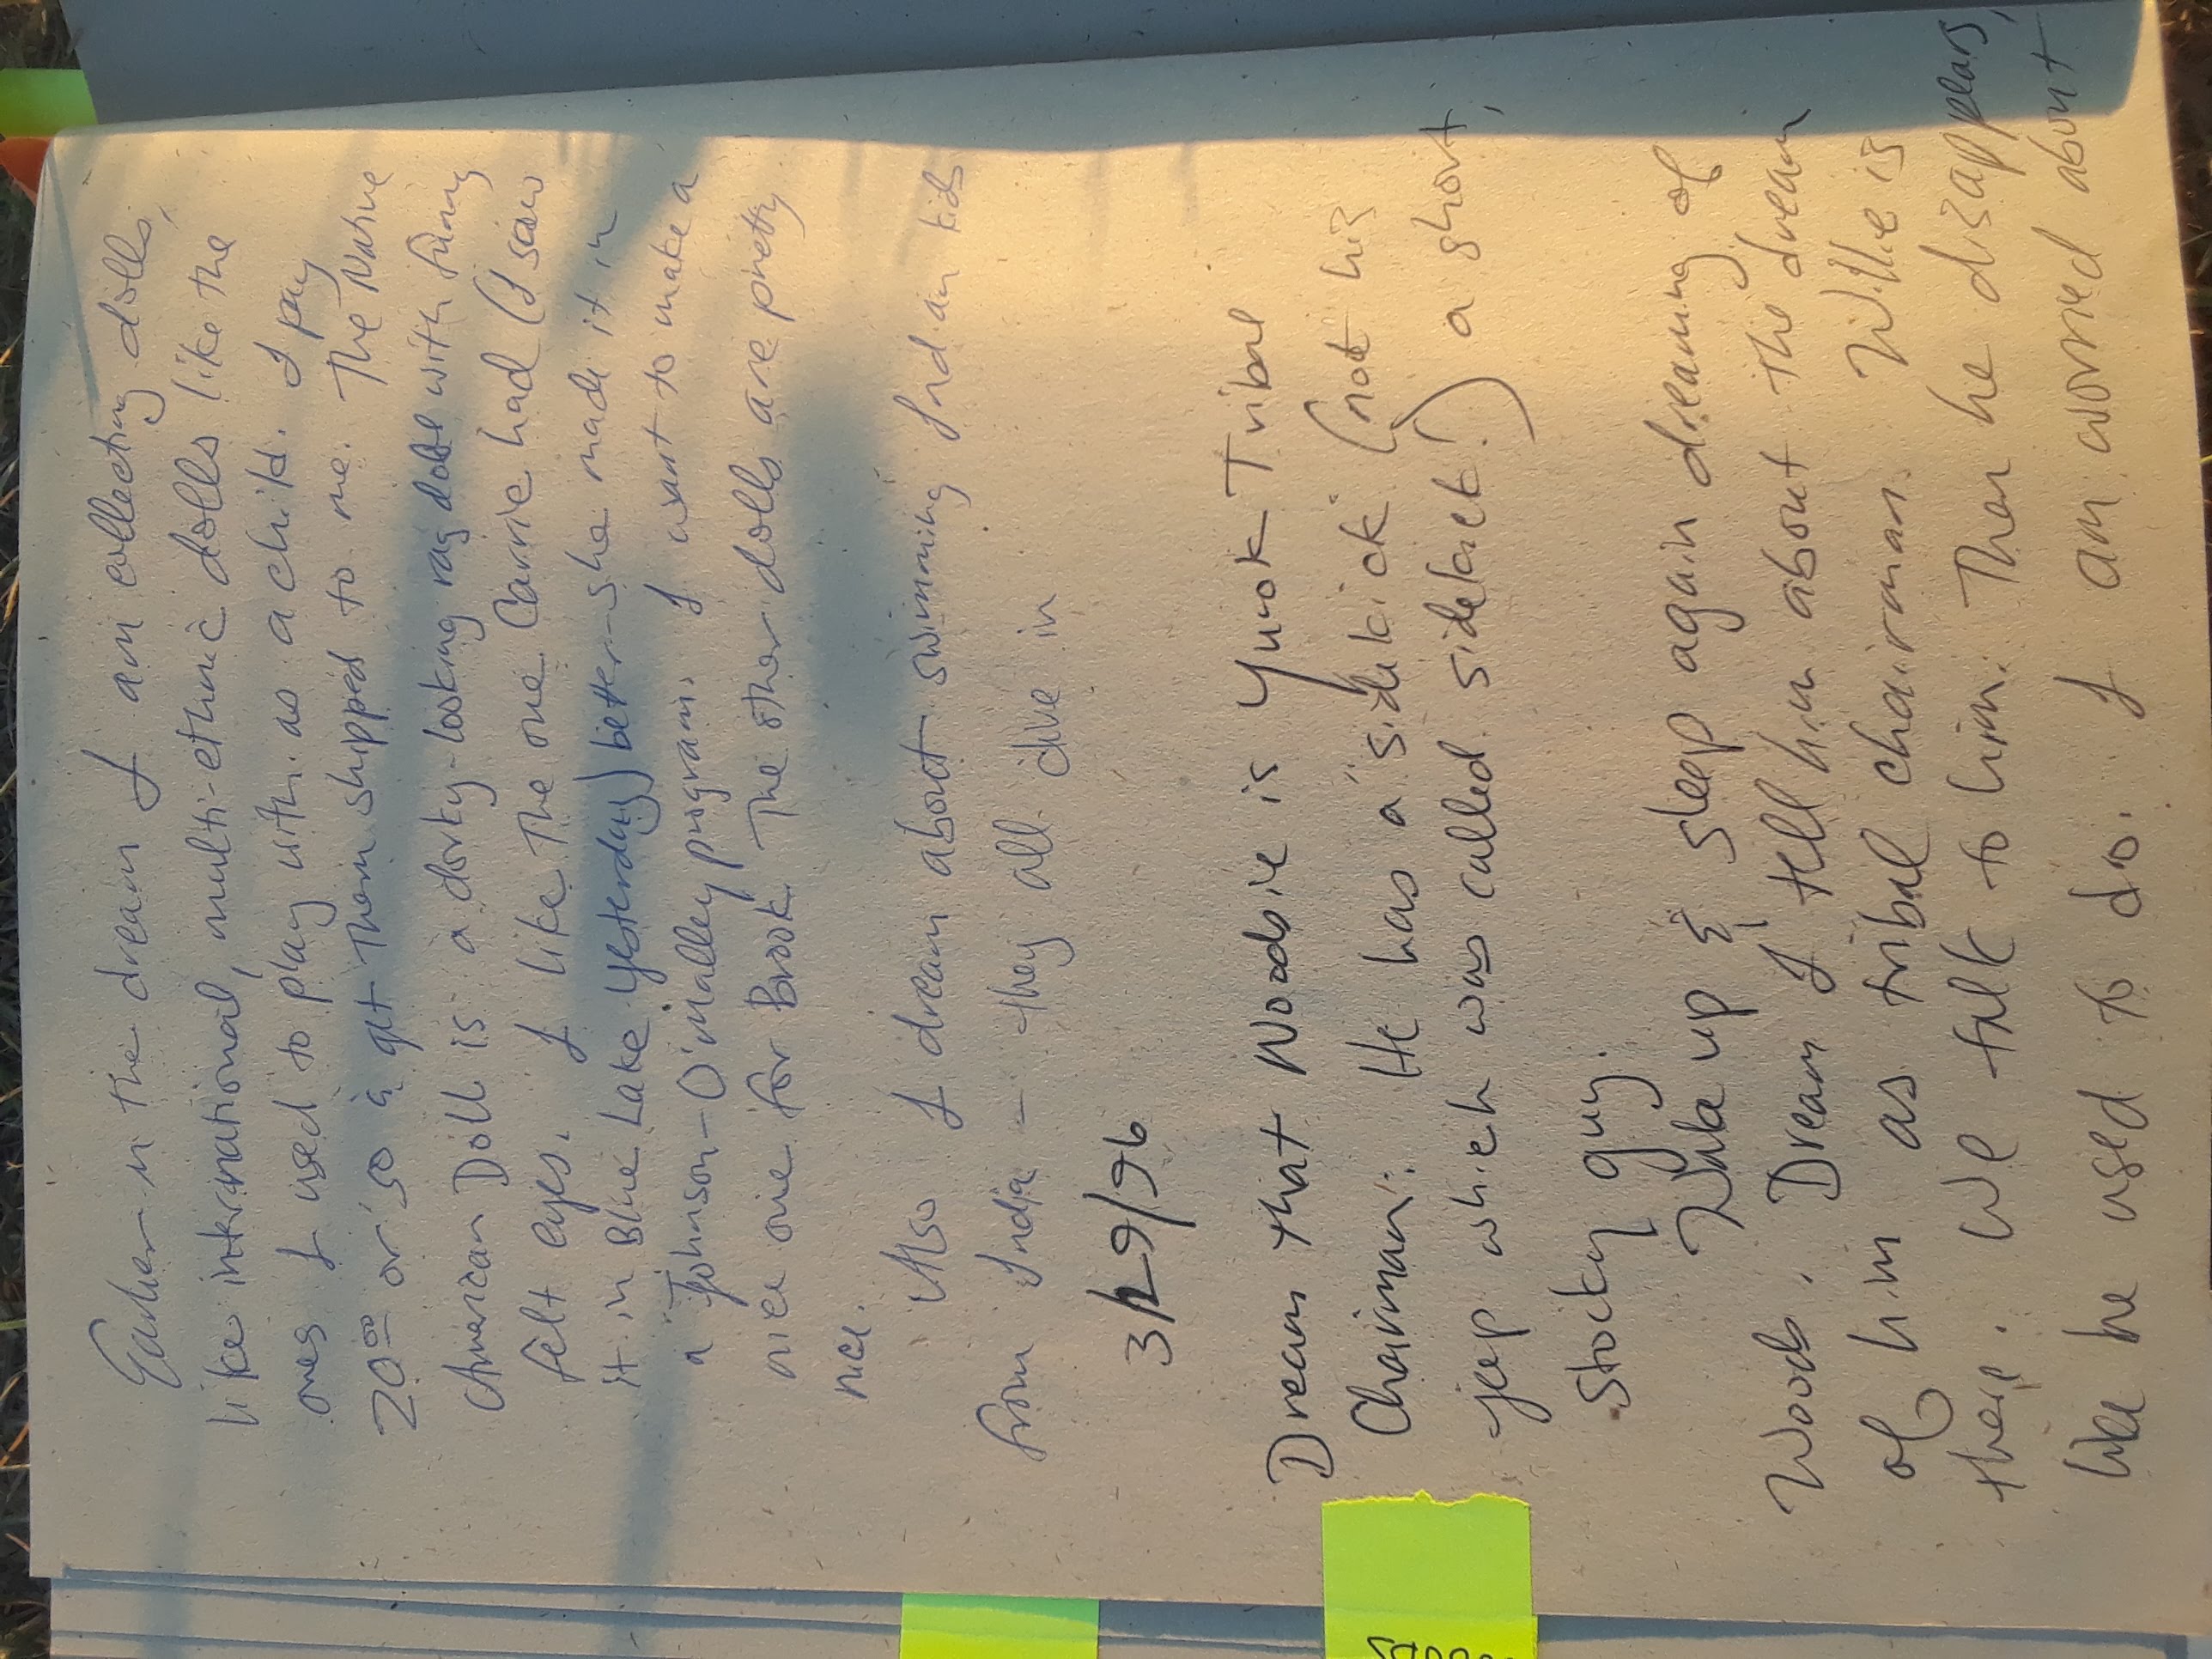 Earlier in the dream I am collecting dolls,
like international, multi-ethnic dolls like the
ones I used to play with as a child. I pay
20.00 or so & get them shipped to me. The Native
American Doll is a dorky-looking rag doll with funny
felt eyes. I like the one Carrie had (I saw
it in Blue Lake yesterday) better - she made it in
a Johnson-O'Malley program. I want to make a
nice one for Brook. The other dolls are pretty
nice.
Also I dream about swimming Indian kids
from India - they all dive in
3/29/96
Dream that Woodsie is Yurok Tribal
Chairman. He has a "sidekick" (not his
jeep which was called sidekick!) a short,
stocky guy.
Wake up & sleep again dreaming of
Woods. Dream I tell him about the dream
of him as tribal chairman. Willie is
there. We talk to him. Then he disappears,
like he used to do. I am worried about